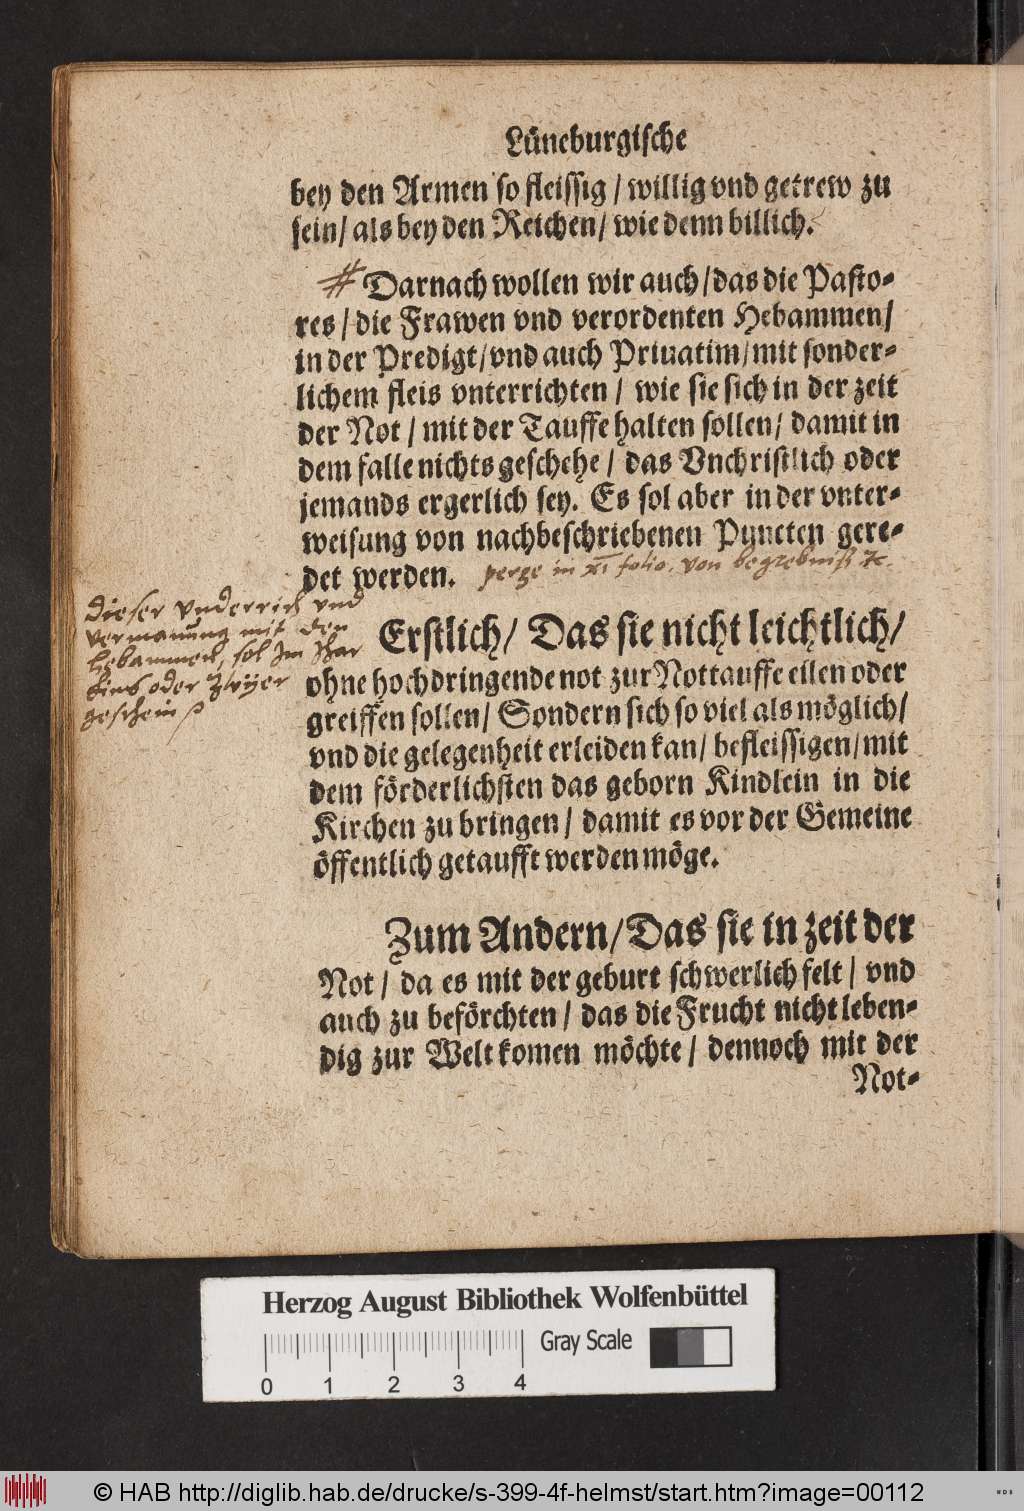 Lüneburgische
bey den Armen so fleissig / willig vnd getrew zu
sein / als bey den Reichen / wie denn billich.
# Darnach wollen wir auch / das die Pasto-
res / die Frawen vnd verordenten Hebammen /
in der Predigt / vnd auch Priuatim / mit sonder-
lichem fleis vnterrichten / wie sie sich in der zeit
der Not / mit der Tauffe halten sollen / damit in
dem falle nichts geschehe / das Vnchristlich oder
jemands ergerlich sey. Es sol aber in der vnter-
weisung von nachbeschriebenen Puncten gere-
det werden. perge in XI folio. von begrebniß
dieser vnderrich vnd
vermanung mit den
Hebammen, sol Im Jhar
eins oder
Erstlich / Das sie nicht leichtlich /
ohne hochdringende not zur Nottauffe eilen oder
greiffen sollen / Sondern sich so viel als möglich /
vnd die gelegenheit erleiden kan / befleissigen / mit
dem förderlichsten das geborn Kindlein in die
Kirchen zu bringen / damit es vor der Gemeine
öffentlich getaufft werden möge.
Zum Andern / Das sie in zeit der
Not / da es mit der geburt schwerlich felt / vnd
auch zu beförchten / das die Frucht nicht leben-
dig zur Welt komen möchte / dennoch mit der
Not-
Herzog August Bibliothek Wolfenbüttel
Gray Scale
0 1 2 3 4
© HAB http://diglib.hab.de/drucke/s-399-4f-helmst/start.htm?image=00112